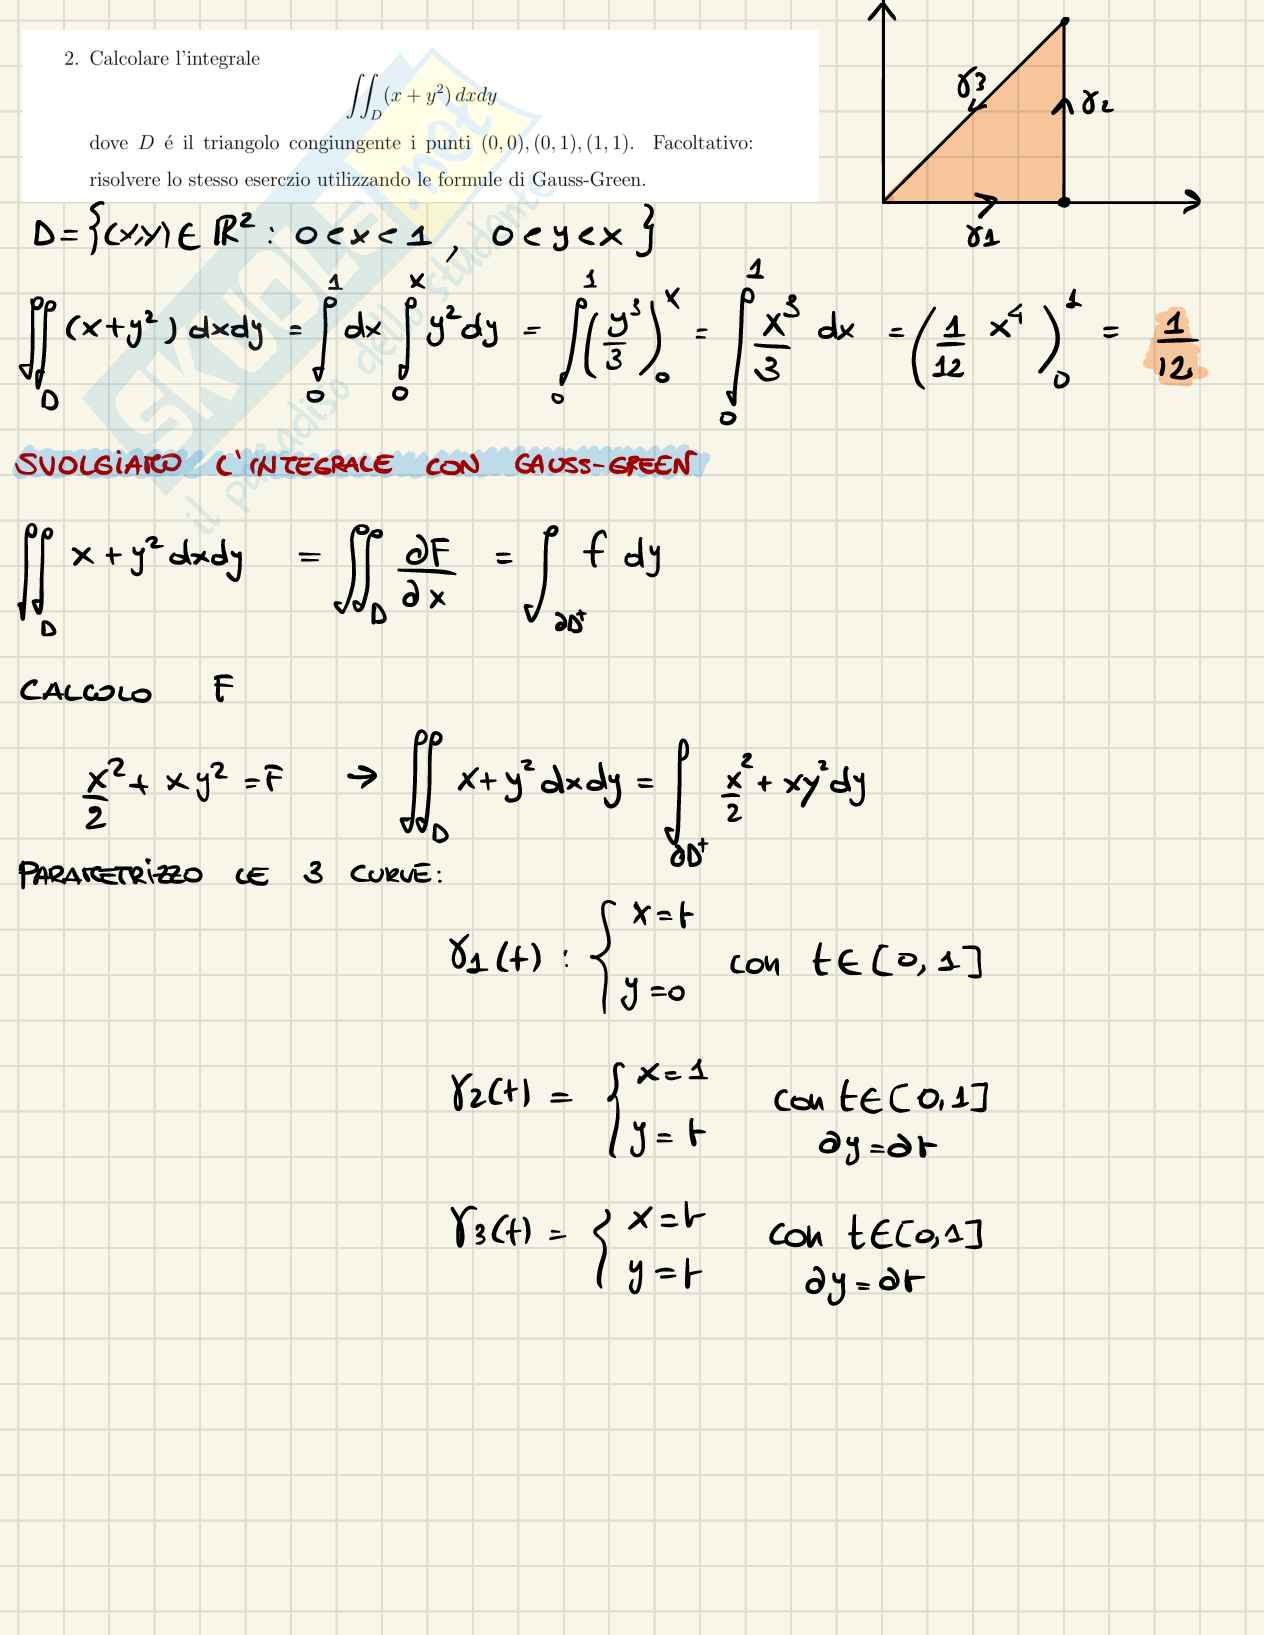 2. Calcolare l'integrale
∬_D (x + y²) dxdy
dove D é il triangolo congiungente i punti (0, 0), (0, 1), (1, 1). Facoltativo:
risolvere lo stesso eserczio utilizzando le formule di Gauss-Green.
γ3
γ2
γ1
SKUOLA.net
il paradiso dello studente
D = {(x,y) ∈ ℝ² : 0 < x < 1 , 0 < y < x }
∬_D (x+y²) dxdy = ∫_0^1 dx ∫_0^x y² dy = ∫_0^1 (y³/3)_0^x = ∫_0^1 x³/3 dx = (1/12 x⁴)_0^1 = 1/12
SVOLGIAMO L'INTEGRALE CON GAUSS-GREEN
∬_D x + y² dxdy = ∬_D ∂F/∂x = ∫_∂D⁺ f dy
CALCOLO F
x²/2 + xy² = F → ∬_D x + y² dxdy = ∫_∂D⁺ x²/2 + xy² dy
PARAMETRIZZO LE 3 CURVE:
γ1(t) : { x = t
y = 0 con t ∈ [0, 1]
γ2(t) = { x = 1
y = t con t ∈ [0,1]
∂y = ∂t
γ3(t) = { x = t
y = t con t ∈ [0,1]
∂y = ∂t